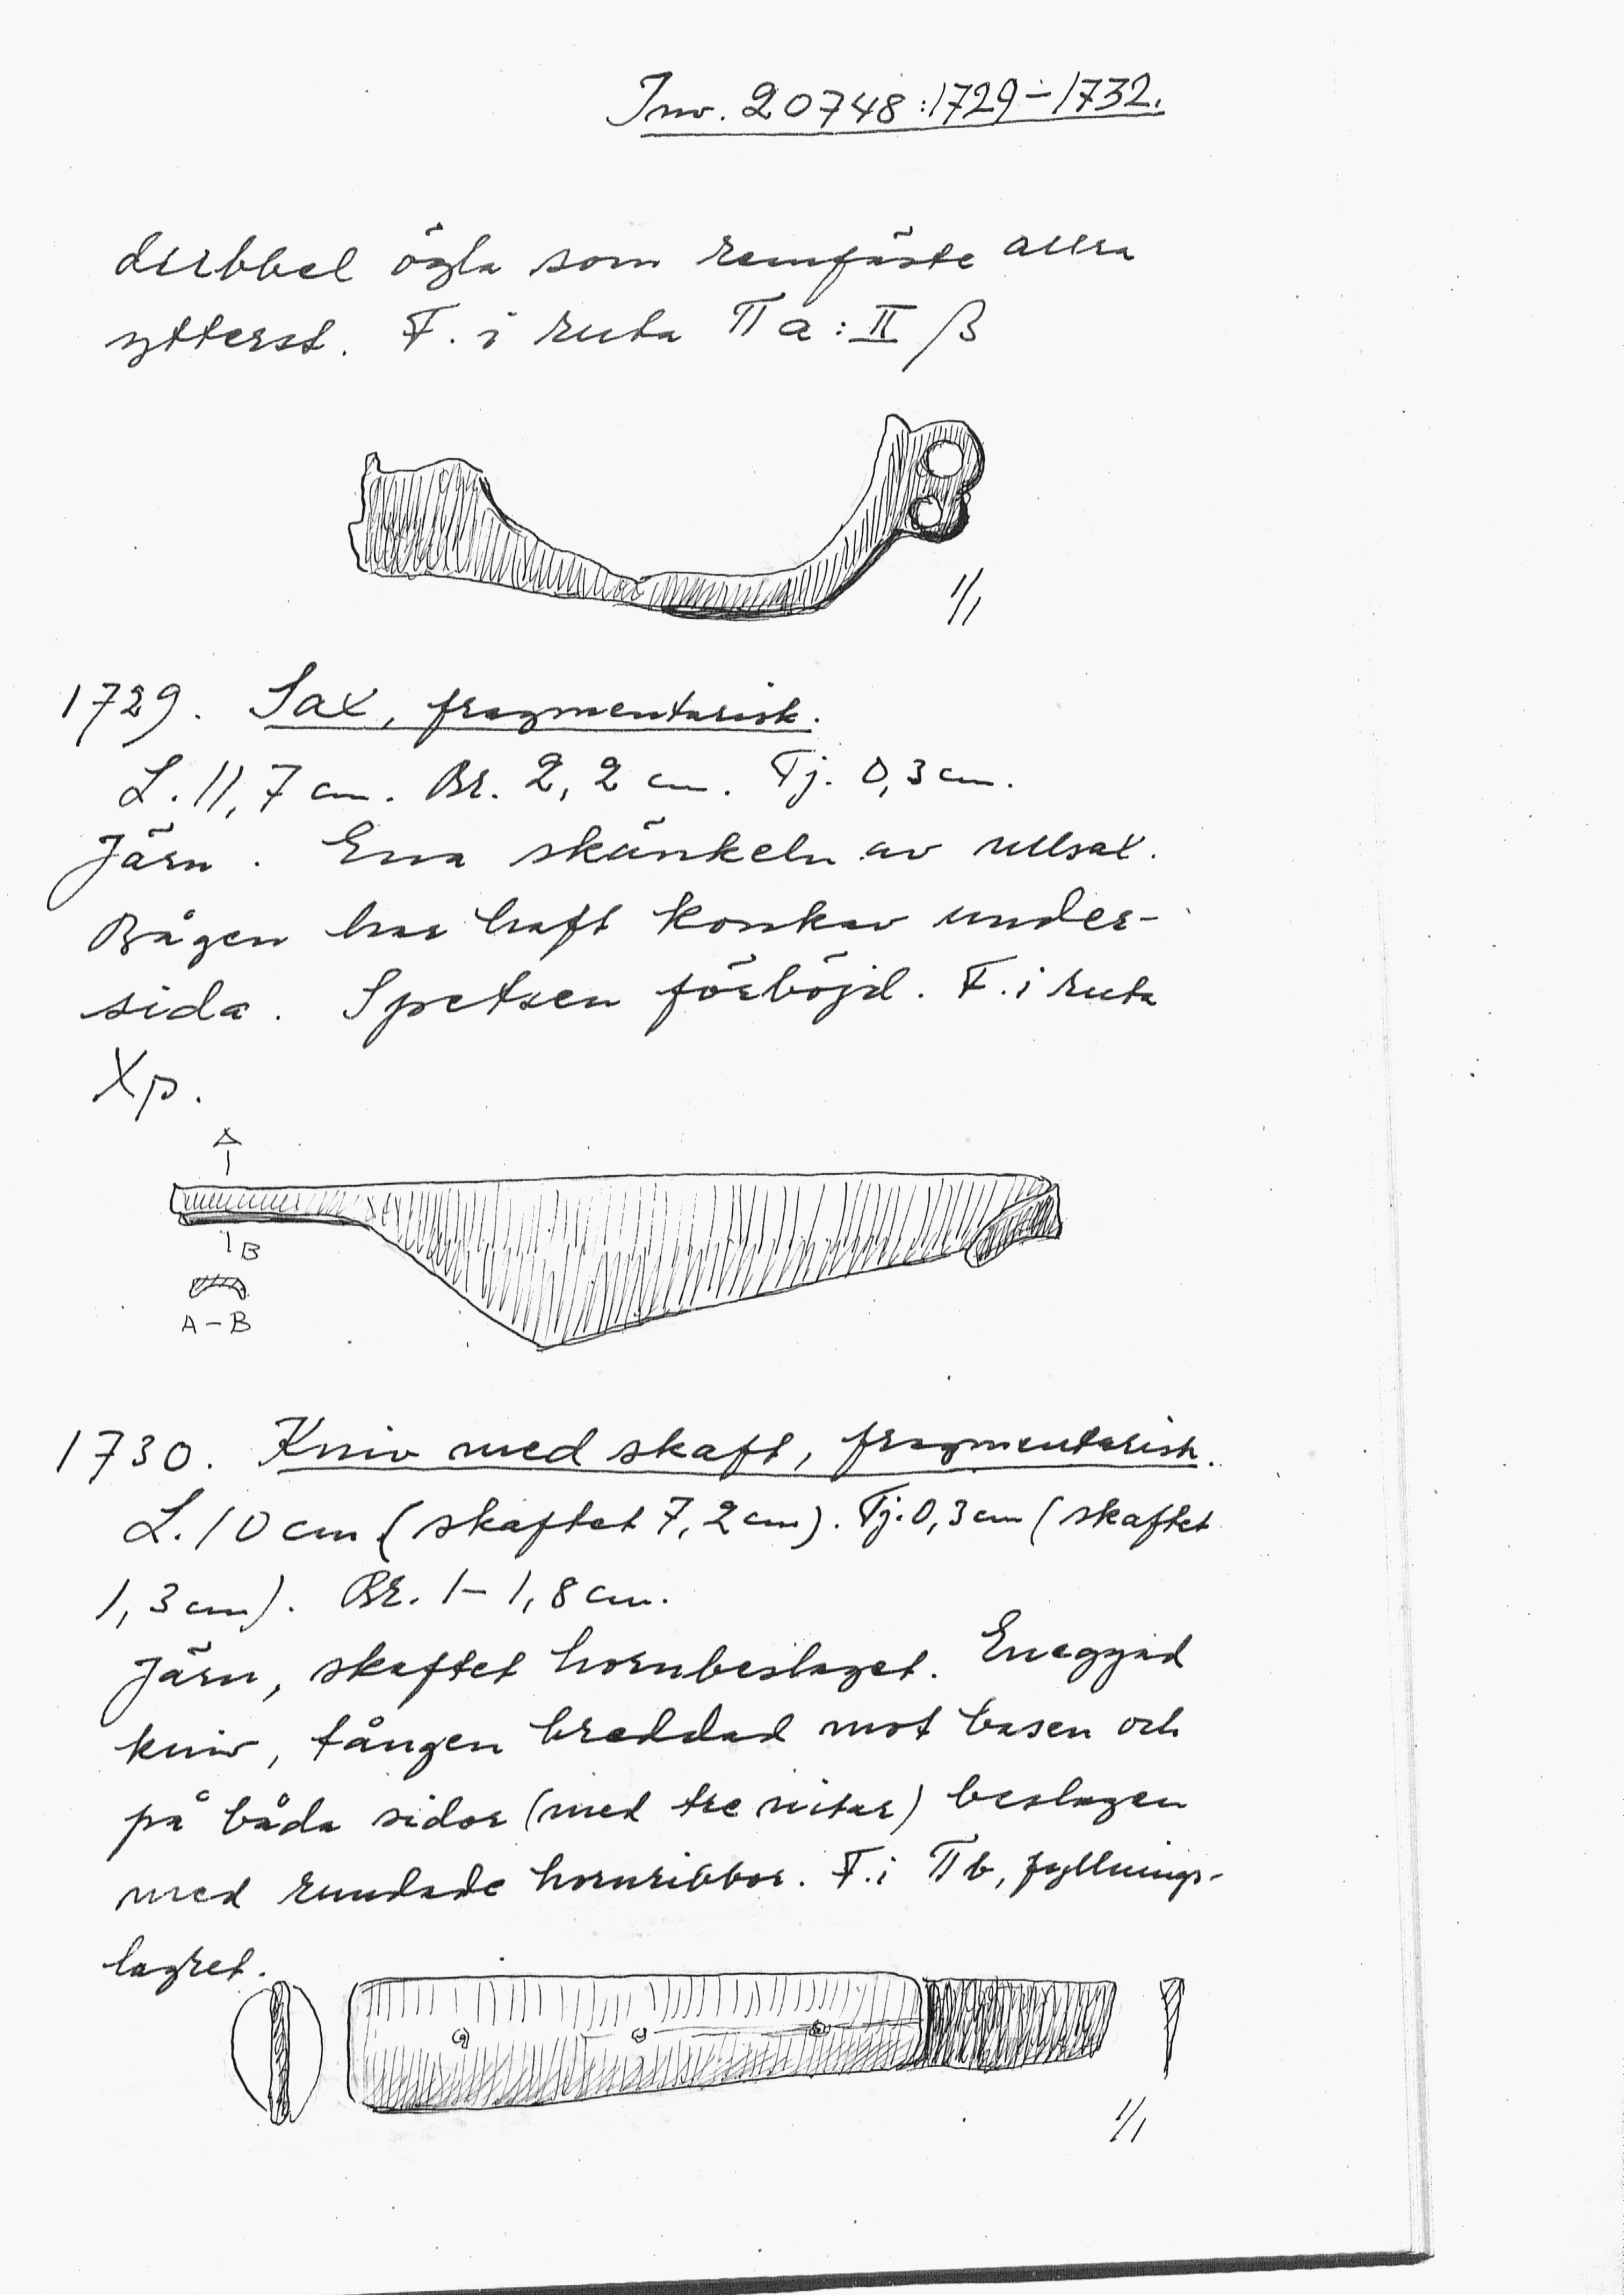 Inv. 20748:1729–1732.
dubbel ögla som remfäste allra
ytterst. F. i ruta Πa:II β
1/1
1729. Sax, fragmentarisk.
L. 11,7 cm. Br. 2,2 cm. Tj. 0,3 cm.
Järn. Ena skänkeln av ullsax.
Bågen har haft konkav under-
sida. Spetsen förböjd. F. i ruta
Xp.
A
B
A–B
1730. Kniv med skaft, fragmentarisk.
L. 10 cm (skaftet 7,2 cm). Tj. 0,3 cm (skaftet
1,3 cm). Br. 1–1,8 cm.
Järn, skaftet hornbeslaget. Eneggad
kniv, tången breddad mot basen och
på båda sidor (med tre nitar) beslagen
med rundade hornribbor. F. i Πb, fyllnings-
lagret.
1/1